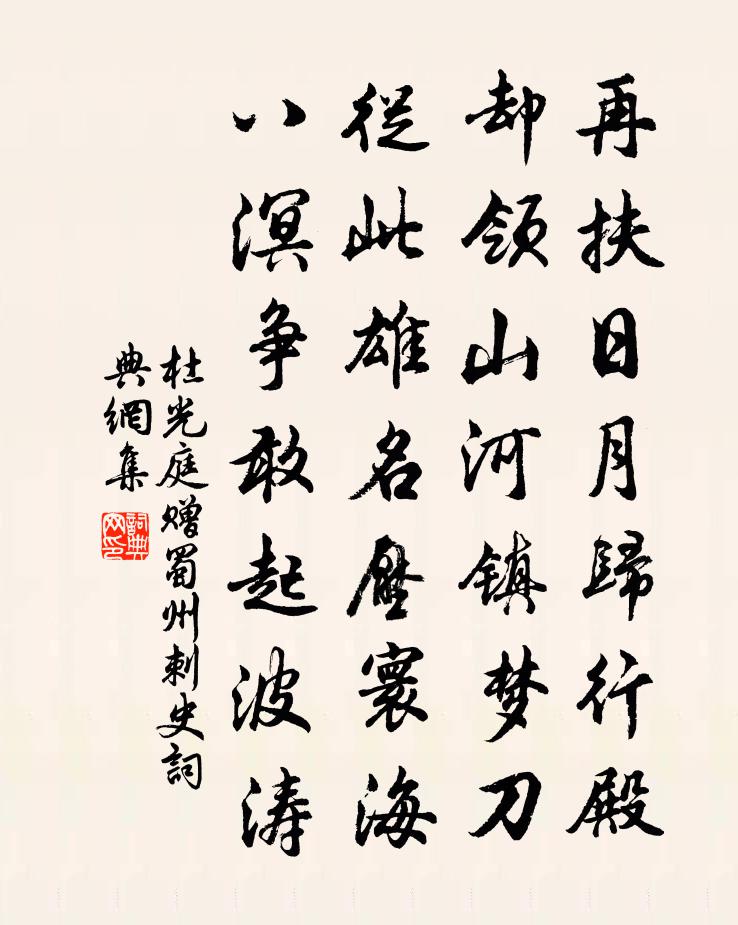 再扶日月歸行殿
却領山河镇梦刀
從此雄名壓寰海
八溟争敢起波涛
杜光庭赠蜀州刺史詞
典網集
詞典
网印